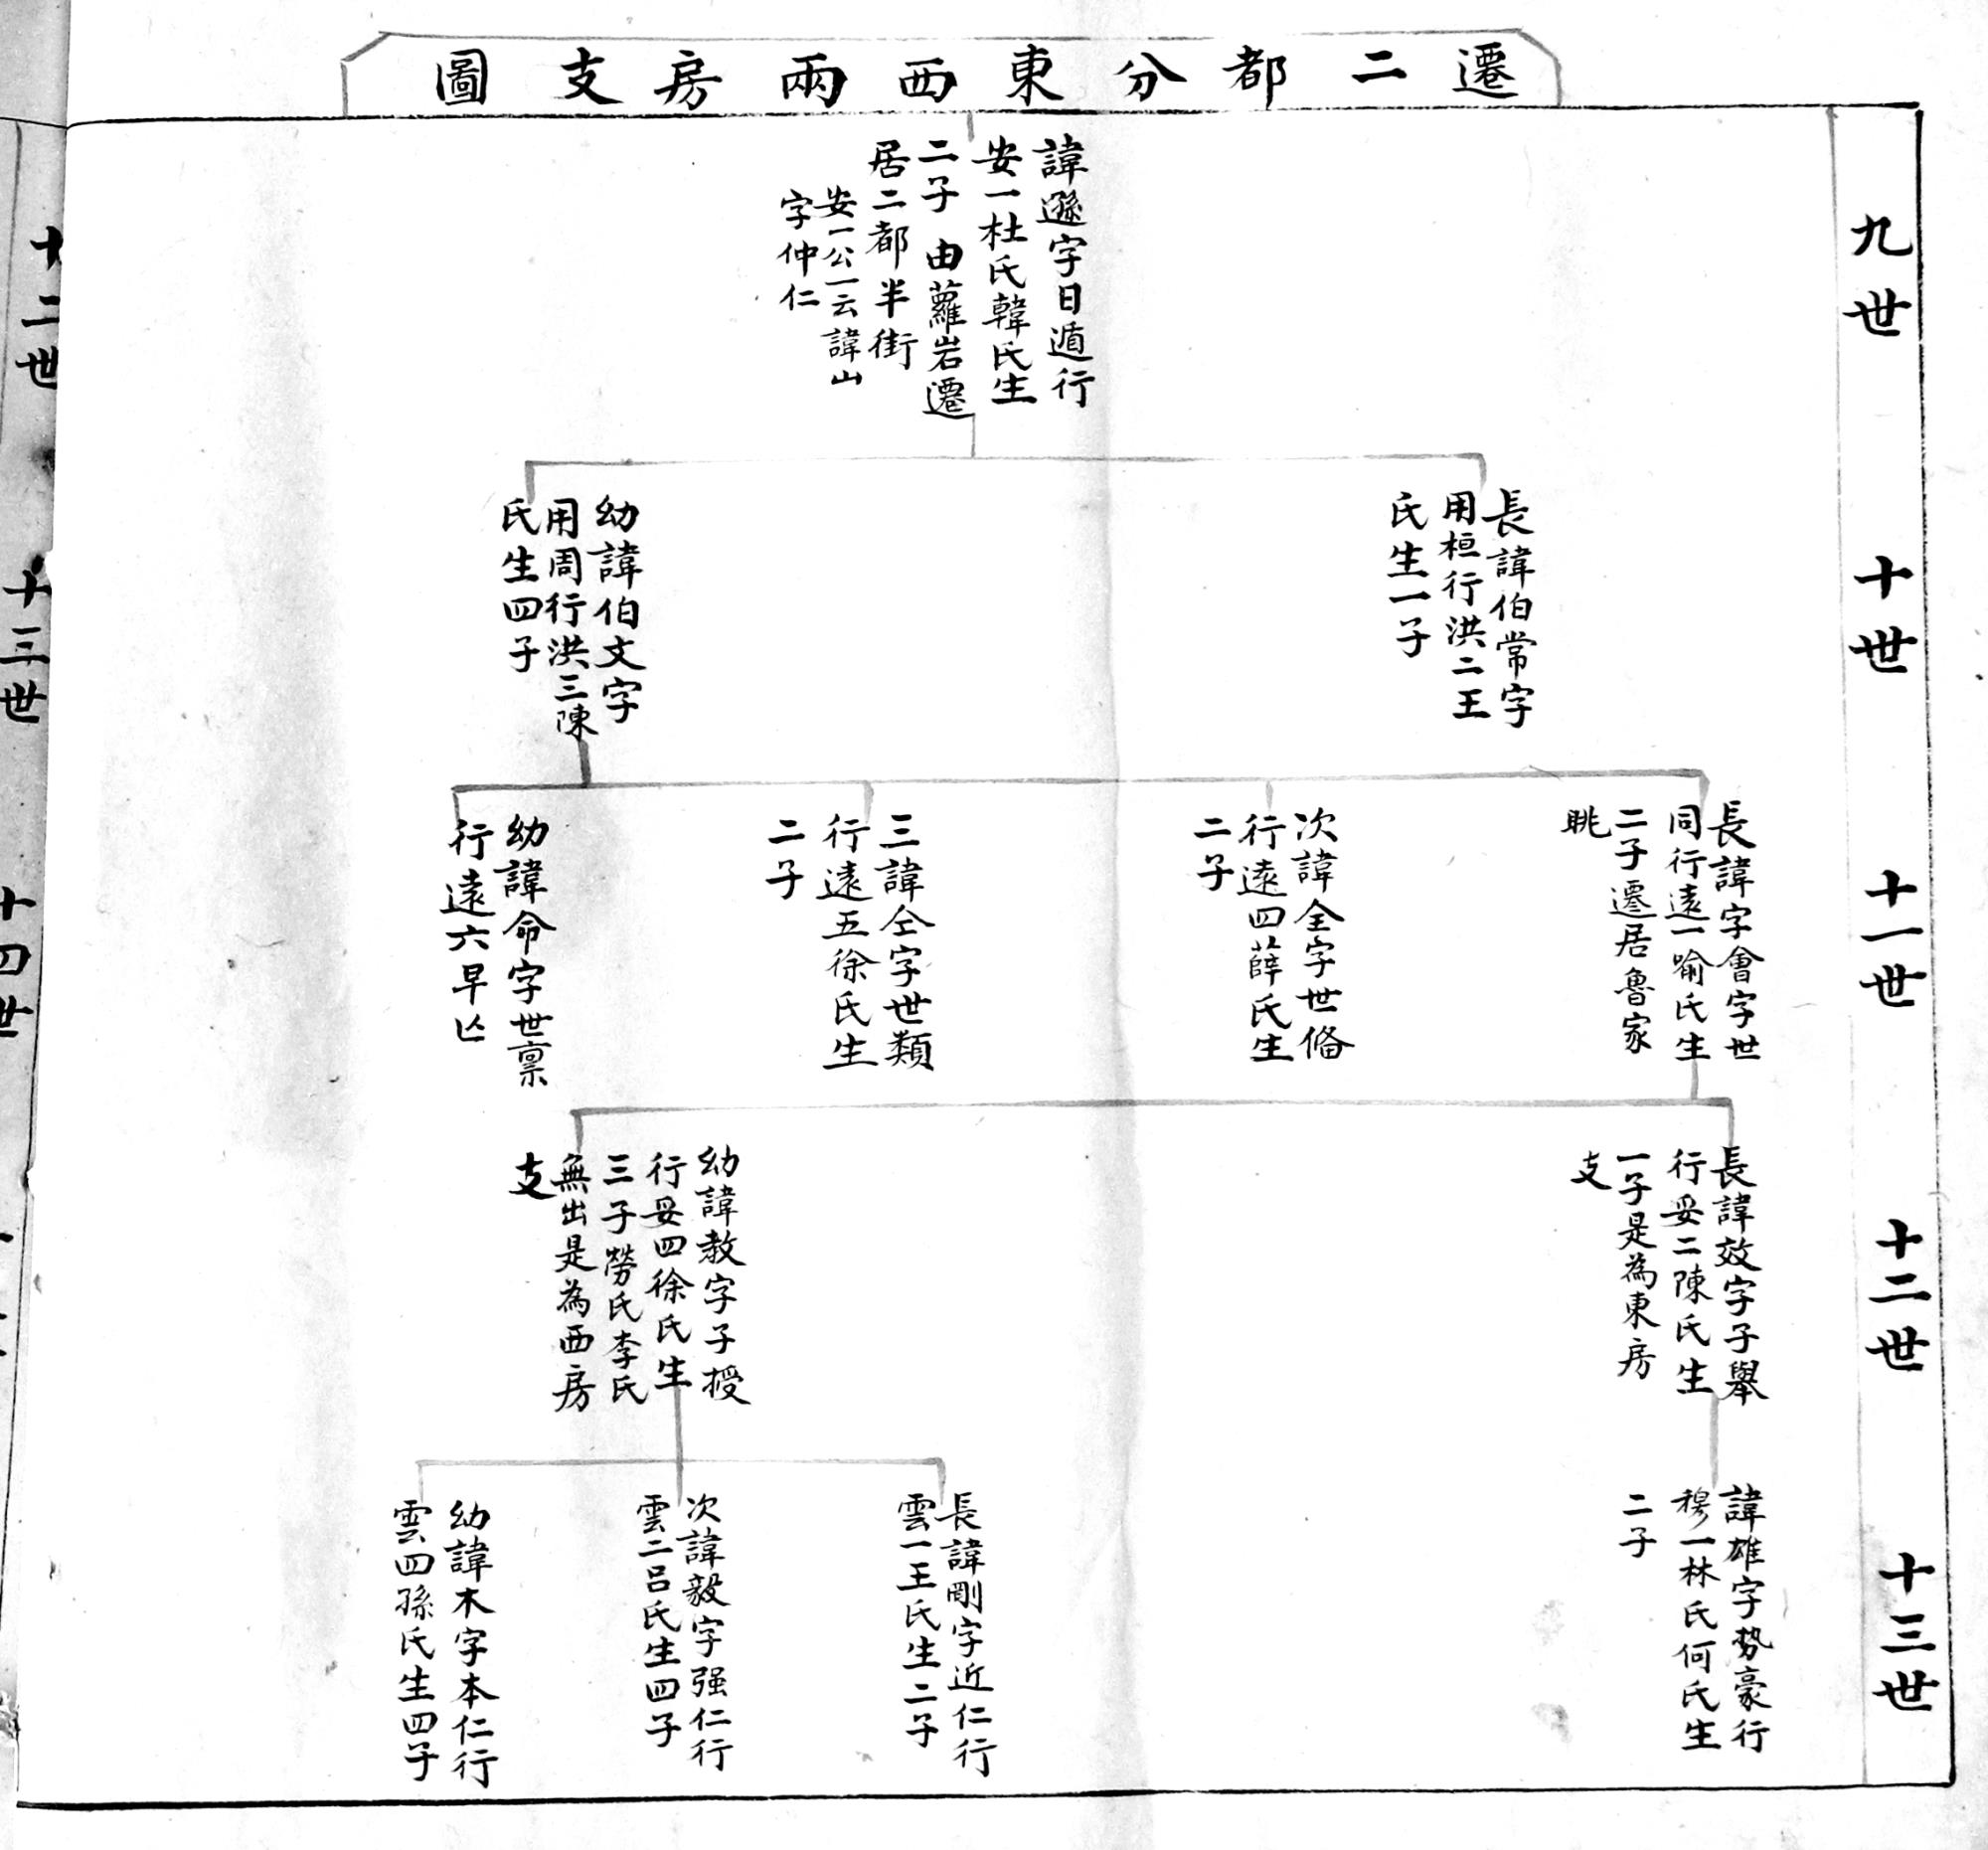 遷二都分東西兩房支圖
九世
諱遜字日遁行
安一杜氏韓氏生
二子 由蘿岩遷
居二都半街
安一公一云諱山
字仲仁
十世
長諱伯常字
用桓行洪二王
氏生一子
幼諱伯文字
用周行洪三陳
氏生四子
十一世
長諱字會字世
同行遠一喻氏生
二子遷居魯家
晀
次諱全字世俻
行遠四薛氏生
二子
三諱仝字世類
行遠五徐氏生
二子
幼諱命字世禀
行遠六早亾
十二世
長諱效字子舉
行妥二陳氏生
一子是為東房
支
幼諱教字子授
行妥四徐氏生
三子勞氏李氏
無出是為西房
支
十三世
諱雄字勢豪行
穆一林氏何氏生
二子
長諱剛字近仁行
雲一王氏生二子
次諱毅字强仁行
雲二呂氏生四子
幼諱木字本仁行
雲四孫氏生四子
十二世
十三世
十四世